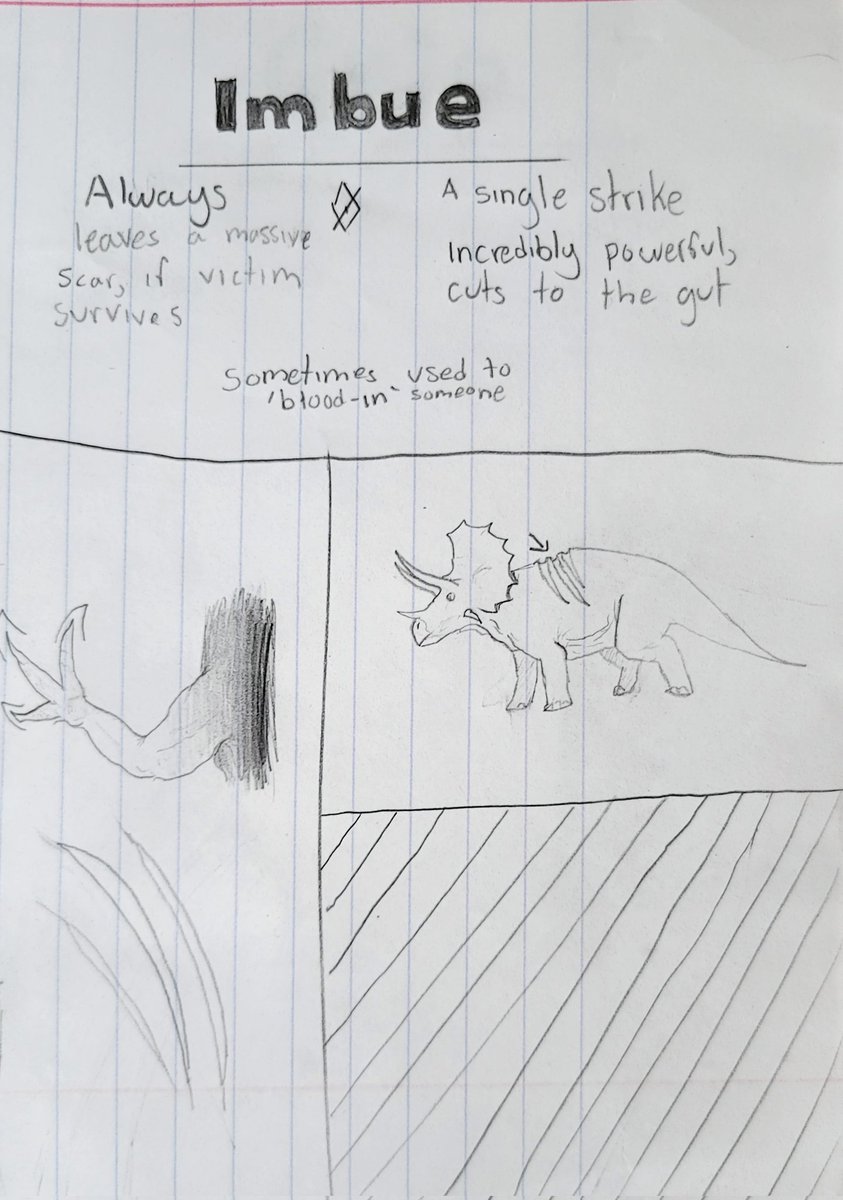 Imbue
Always
leaves a massive
scar, if victim
survives
A single strike
Incredibly powerful,
cuts to the gut
Sometimes used to
'blood-in' someone